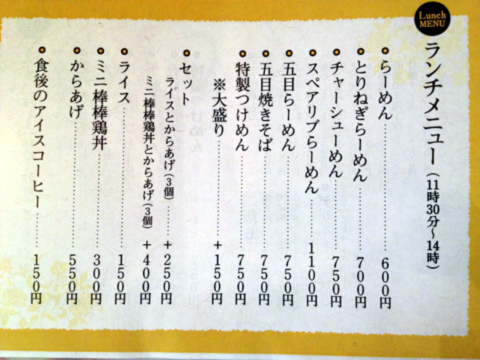 Lunch
MENU
ランチメニュー(11時30分〜14時)
らーめん……600円
とりねぎらーめん……700円
チャーシューめん……750円
スペアリブらーめん……1100円
五目らーめん……750円
五目焼きそば……750円
特製つけめん……750円
※大盛り……+150円
セット
ライスとからあげ(3個)……+250円
ミニ棒棒鶏丼とからあげ(3個)+400円
ライス……150円
ミニ棒棒鶏丼……300円
からあげ……550円
食後のアイスコーヒー……150円